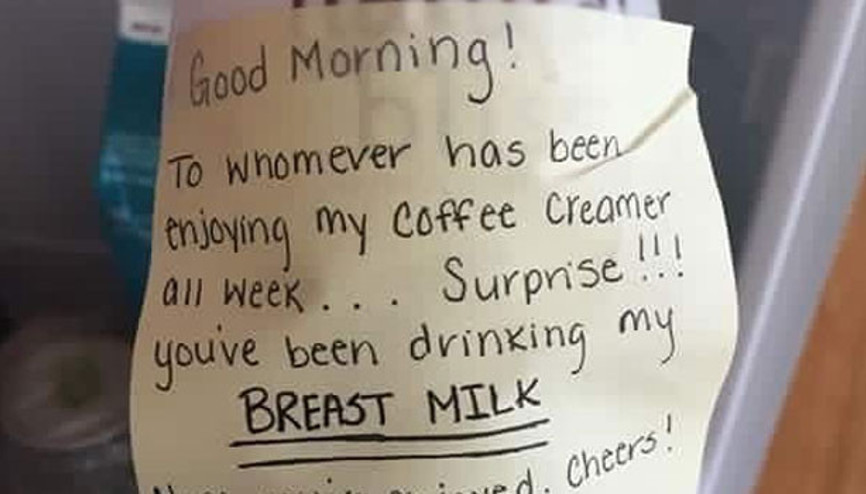 Good Morning!
To whomever has been
enjoying my Coffee Creamer
all week... Surprise!!!
you've been drinking my
BREAST MILK
Cheers!